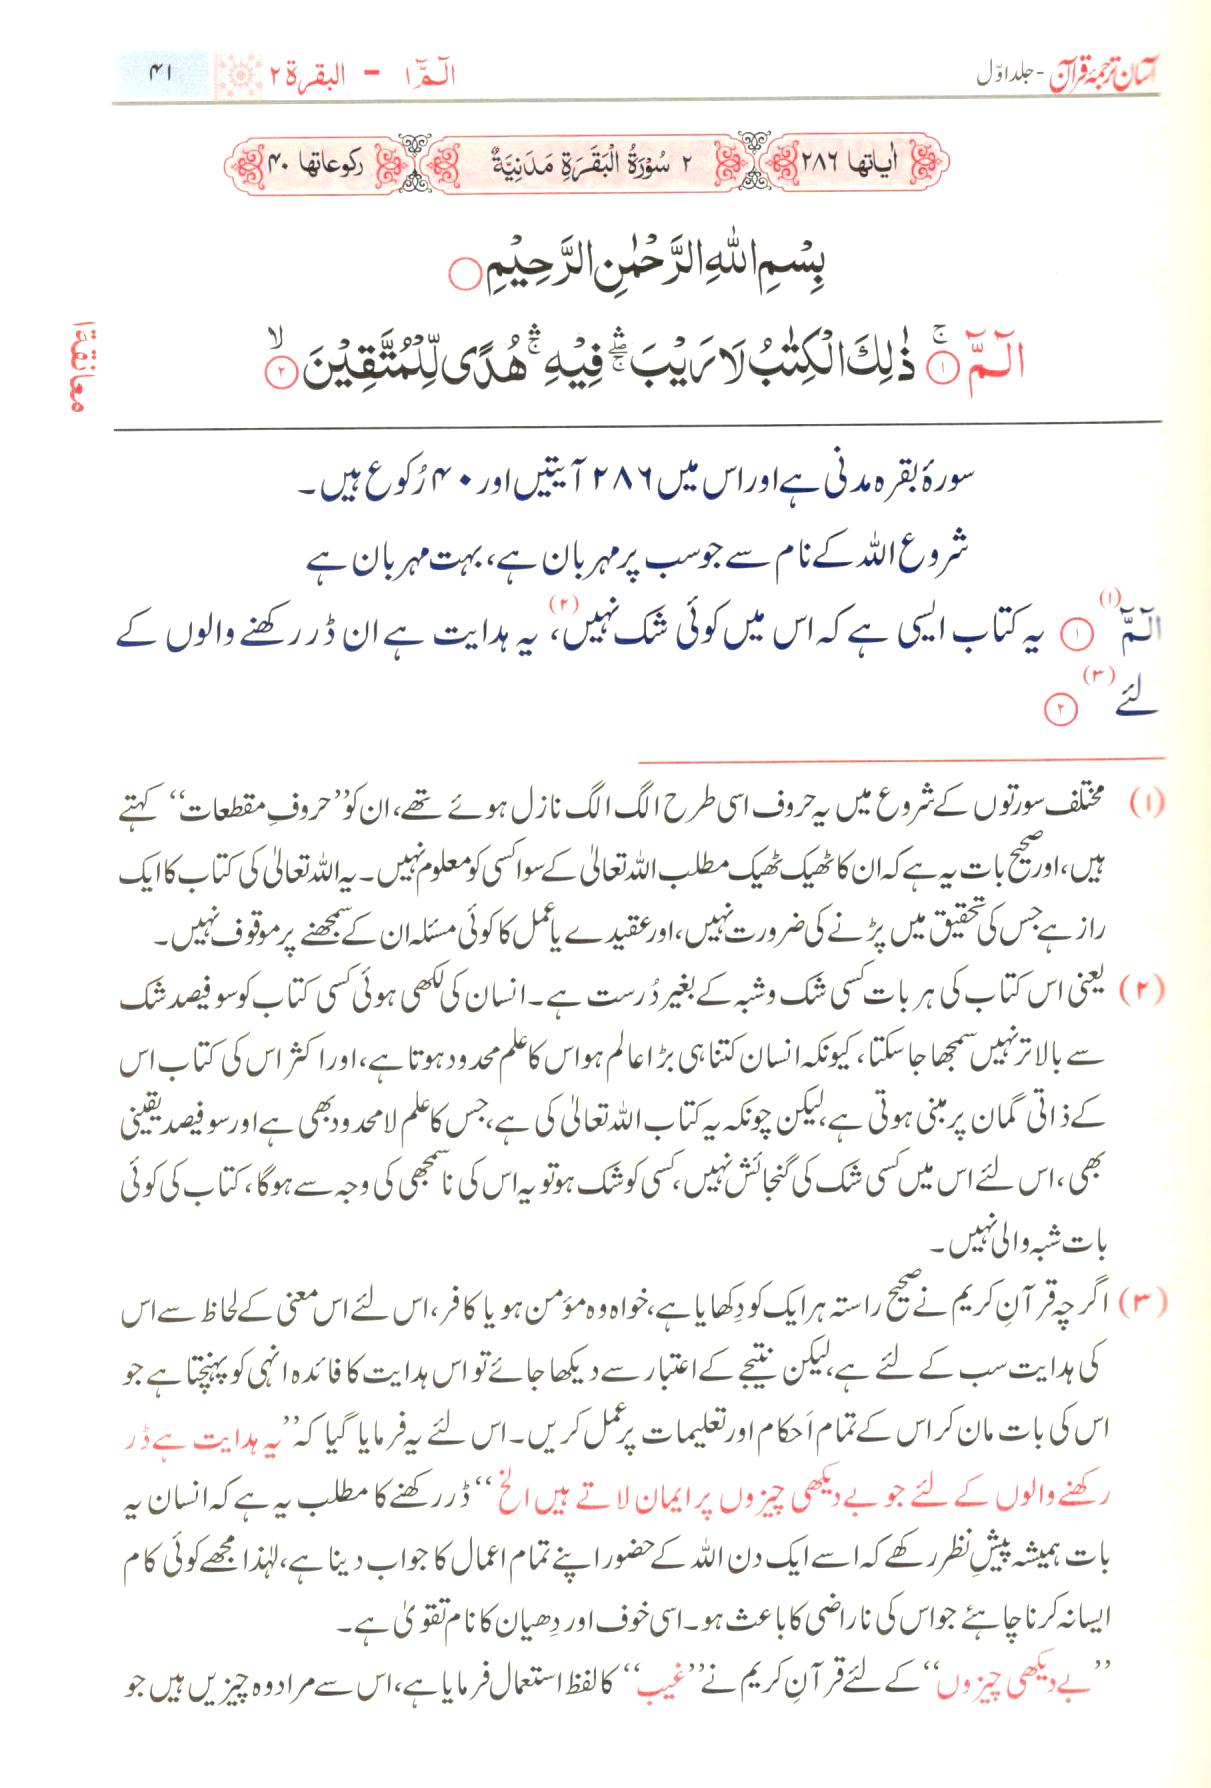 آسان ترجمۂ قرآن - جلد اوّل
الٓـمّٓ ۱ - البقرة ۲
۴۱
اٰیاتها ۲۸۶
۲ سُوْرَةُ الْبَقَرَةِ مَدَنِيَّةٌ
رکوعاتها ۴۰
بِسْمِ اللّٰهِ الرَّحْمٰنِ الرَّحِيْمِ
الٓـمّٓ ۚ﴿۱﴾ ذٰلِكَ الْكِتٰبُ لَا رَيْبَ ۛۖۚ فِيْهِ ۛۚ هُدًى لِّلْمُتَّقِيْنَ ۙ﴿۲﴾
معانقة ۱
سورۂ بقرہ مدنی ہے اور اس میں ۲۸۶ آیتیں اور ۴۰ رُکوع ہیں۔
شروع اللہ کے نام سے جو سب پر مہربان ہے، بہت مہربان ہے
الٓـمّٓ (۱) ﴿۱﴾ یہ کتاب ایسی ہے کہ اس میں کوئی شک نہیں (۲)، یہ ہدایت ہے ان ڈر رکھنے والوں کے
لئے (۳) ﴿۲﴾
(۱) مختلف سورتوں کے شروع میں یہ حروف اسی طرح الگ الگ نازل ہوئے تھے، ان کو ’’حروفِ مقطعات‘‘ کہتے
ہیں، اور صحیح بات یہ ہے کہ ان کا ٹھیک ٹھیک مطلب اللہ تعالیٰ کے سوا کسی کو معلوم نہیں۔ یہ اللہ تعالیٰ کی کتاب کا ایک
راز ہے جس کی تحقیق میں پڑنے کی ضرورت نہیں، اور عقیدے یا عمل کا کوئی مسئلہ ان کے سمجھنے پر موقوف نہیں۔
(۲) یعنی اس کتاب کی ہر بات کسی شک و شبہ کے بغیر دُرست ہے۔ انسان کی لکھی ہوئی کسی کتاب کو سو فیصد شک
سے بالاتر نہیں سمجھا جا سکتا، کیونکہ انسان کتنا ہی بڑا عالم ہو اس کا علم محدود ہوتا ہے، اور اکثر اس کی کتاب اس
کے ذاتی گمان پر مبنی ہوتی ہے، لیکن چونکہ یہ کتاب اللہ تعالیٰ کی ہے، جس کا علم لامحدود بھی ہے اور سو فیصد یقینی
بھی، اس لئے اس میں کسی شک کی گنجائش نہیں، کسی کو شک ہو تو یہ اس کی ناسمجھی کی وجہ سے ہوگا، کتاب کی کوئی
بات شبہ والی نہیں۔
(۳) اگرچہ قرآنِ کریم نے صحیح راستہ ہر ایک کو دِکھایا ہے، خواہ وہ مؤمن ہو یا کافر، اس لئے اس معنی کے لحاظ سے اس
کی ہدایت سب کے لئے ہے، لیکن نتیجے کے اعتبار سے دیکھا جائے تو اس ہدایت کا فائدہ انہی کو پہنچتا ہے جو
اس کی بات مان کر اس کے تمام اَحکام اور تعلیمات پر عمل کریں۔ اس لئے یہ فرمایا گیا کہ ’’یہ ہدایت ہے ڈر
رکھنے والوں کے لئے جو بے دیکھی چیزوں پر ایمان لاتے ہیں الخ‘‘ ڈر رکھنے کا مطلب یہ ہے کہ انسان یہ
بات ہمیشہ پیشِ نظر رکھے کہ اسے ایک دن اللہ کے حضور اپنے تمام اعمال کا جواب دینا ہے، لہٰذا مجھے کوئی کام
ایسا نہ کرنا چاہئے جو اس کی ناراضی کا باعث ہو۔ اسی خوف اور دِھیان کا نام تقویٰ ہے۔
’’بے دیکھی چیزوں‘‘ کے لئے قرآنِ کریم نے ’’غیب‘‘ کا لفظ استعمال فرمایا ہے، اس سے مراد وہ چیزیں ہیں جو